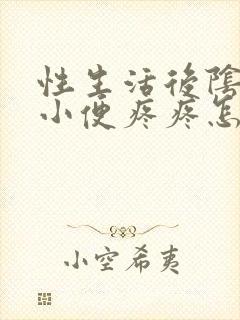 性生活後陰
小便疼疼怎
小空希夷